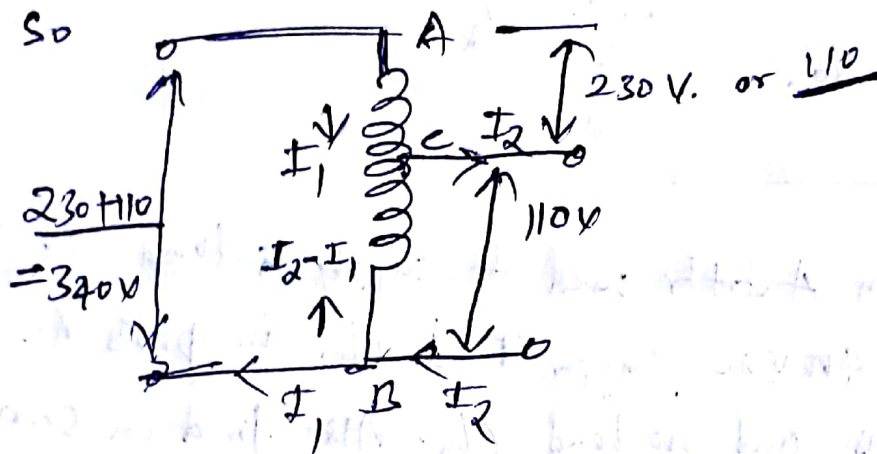 So
A
230 V. or 110
I₁
C I₂
230+110
= 340V
110V
I₂-I₁
I₁ B I₂